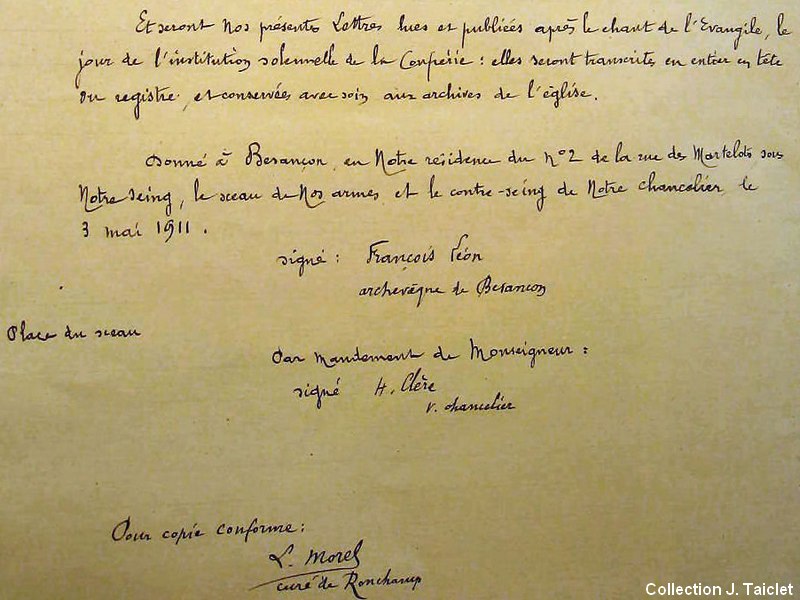 Et seront Nos présentes Lettres lues et publiées après le chant de l'Evangile, le
jour de l'institution solennelle de la Confrérie : elles seront transcrites en entier en tête
du registre, et conservées avec soin aux archives de l'église.
Donné à Besançon, en Notre résidence du n°2 de la rue des Martelots sous
Notre seing, le sceau de Nos armes et le contre-seing de Notre chancelier, le
3 mai 1911.
signé : François Léon
archevêque de Besançon
Place du sceau
Par mandement de Monseigneur :
signé H. Clère
v. chancelier
Pour copie conforme :
L. Morel
curé de Ronchamp
Collection J. Taiclet